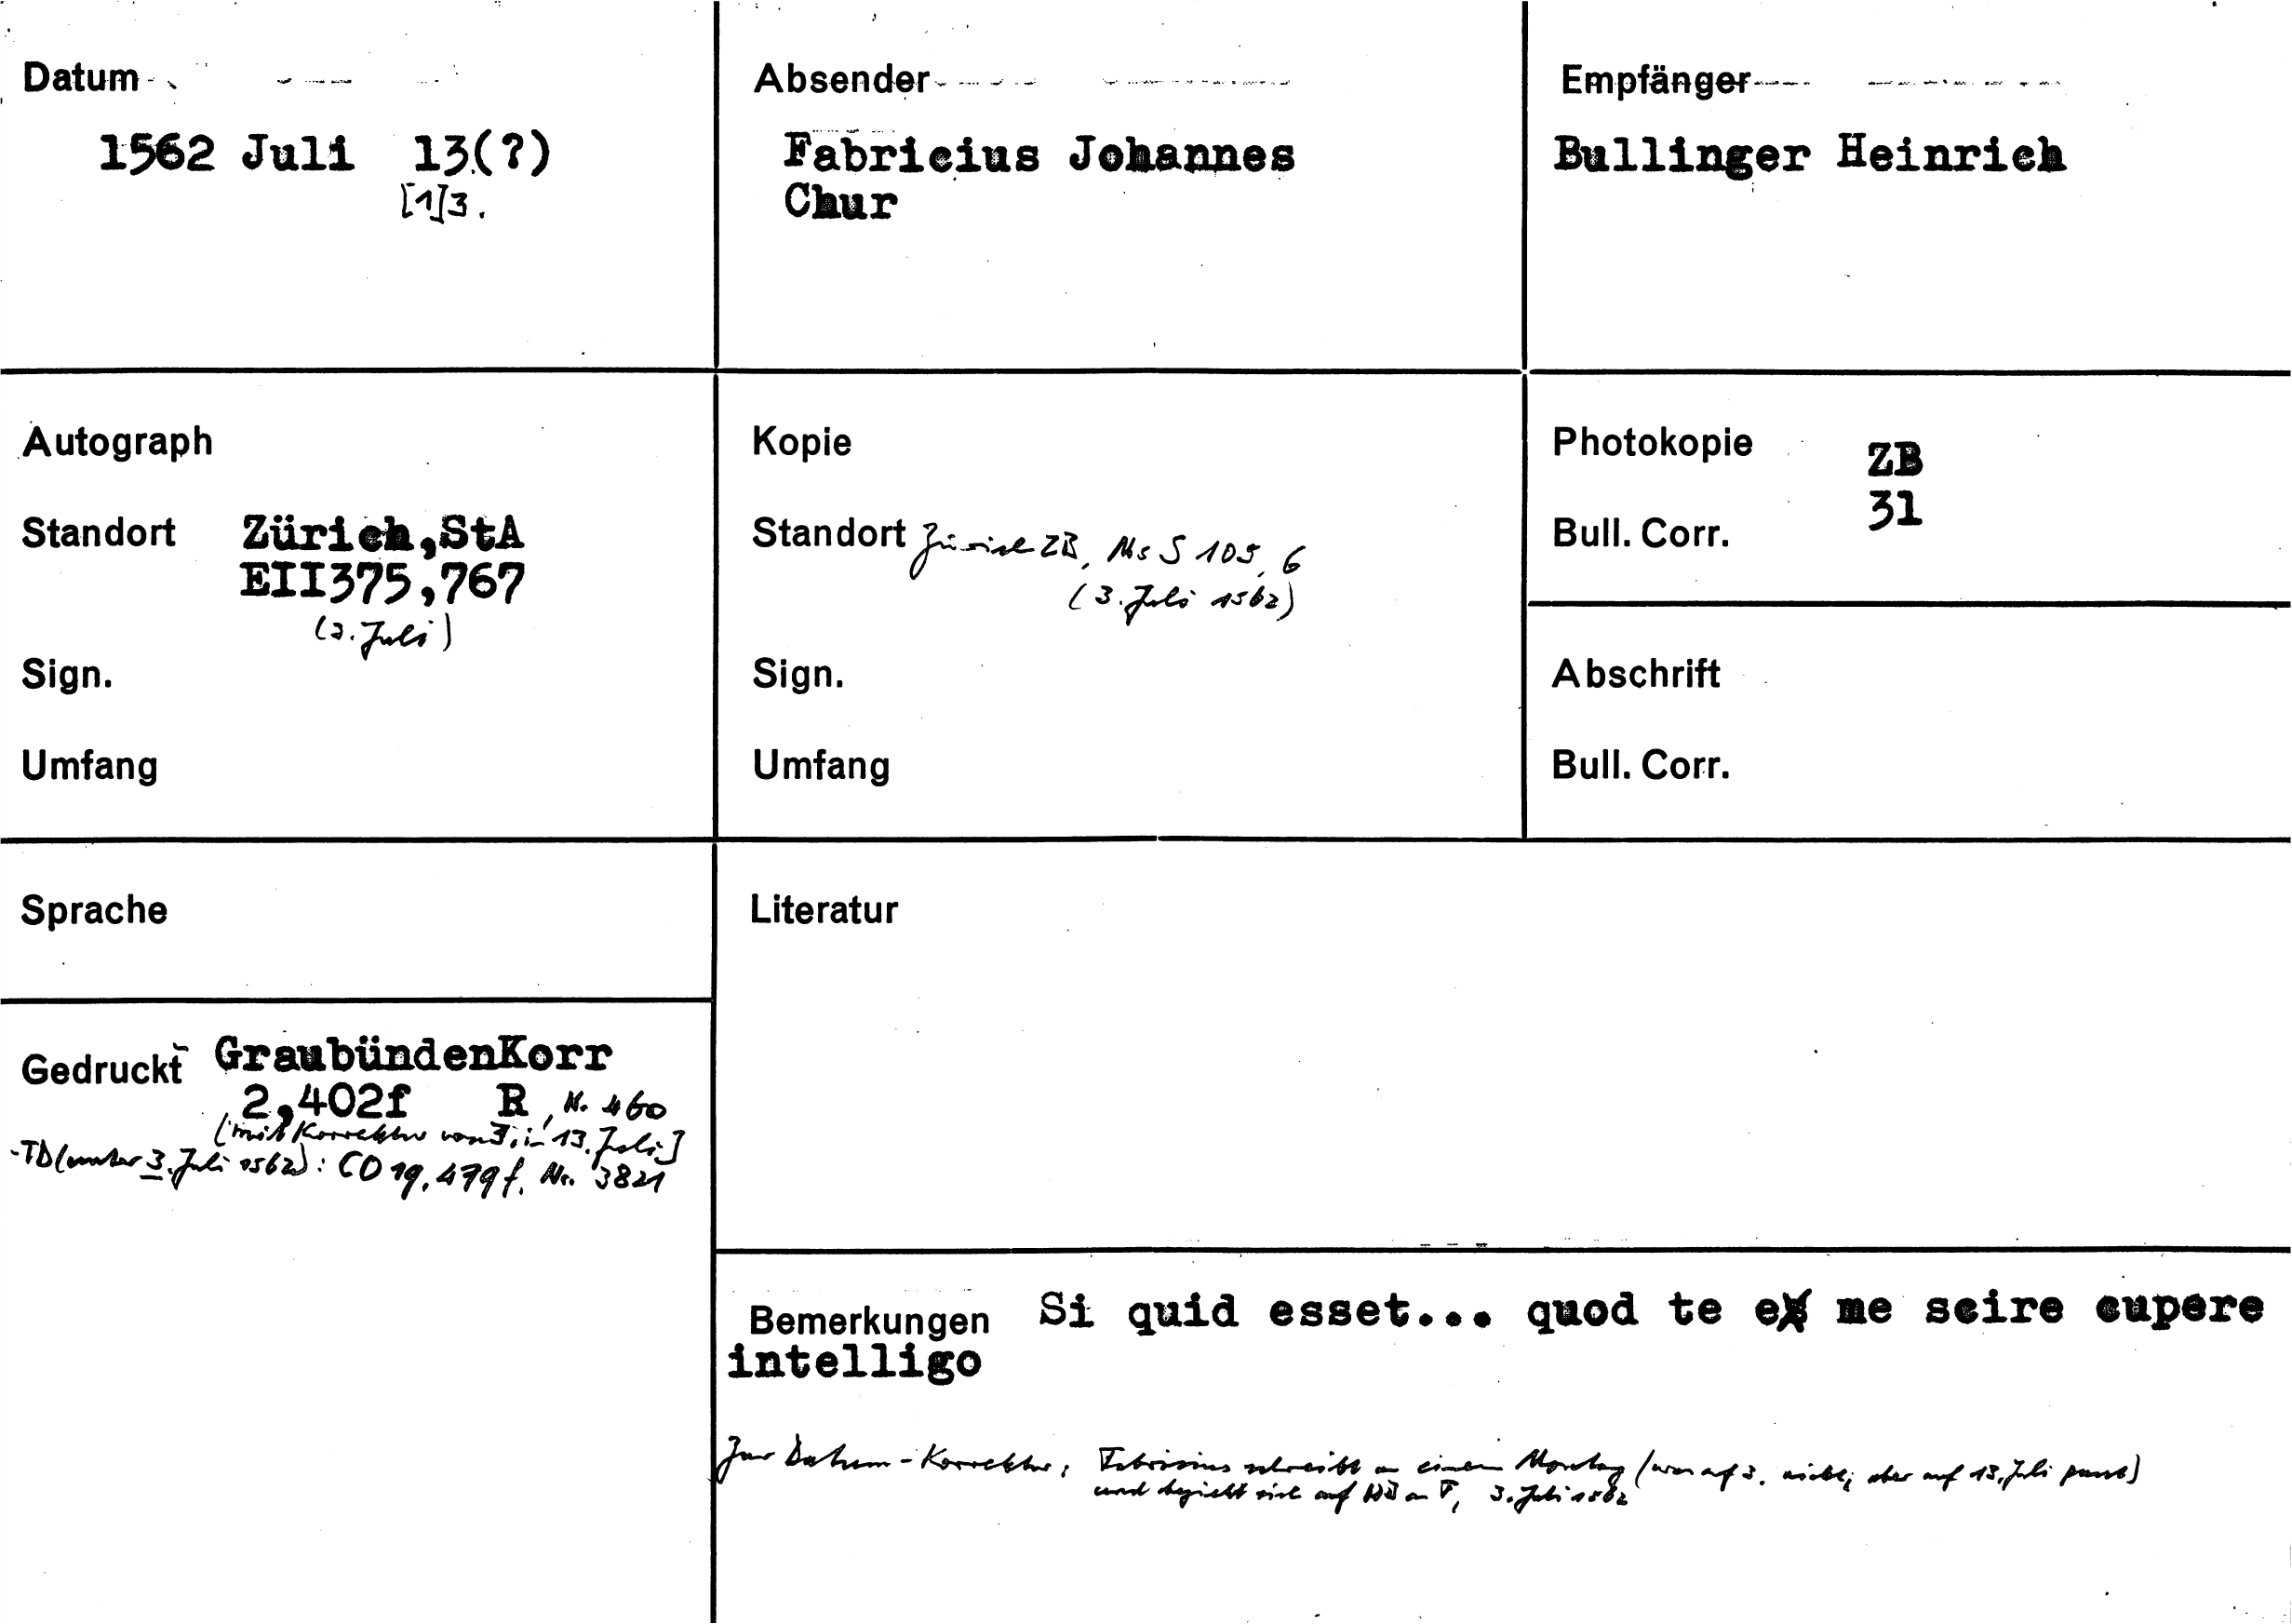 Datum
1562 Juli 13(?)
[1]3.
Absender
Fabricius Johannes
Chur
Empfänger
Bullinger Heinrich
Autograph
Standort Zürich,StA
EII375,767
(3. Juli)
Sign.
Umfang
Kopie
Standort Zürich ZB, Ms S 105, 6
(3. Juli 1562)
Sign.
Umfang
Photokopie ZB
Bull. Corr. 31
Abschrift
Bull. Corr.
Sprache
Gedruckt GraubündenKorr
2,402f R, Nr. 460
(mit Korrektur von 3. in 13. Juli]
-TD (unter 3. Juli 1562): CO 19, 479f, Nr. 3821
Literatur
Bemerkungen Si quid esset... quod te ex me scire cupere
intelligo
Zur Datum-Korrektur: Fabricius schreibt an einem Montag (was auf 3. nicht, aber auf 13. Juli passt)
und bezieht sich auf HB an F, 3. Juli 1562